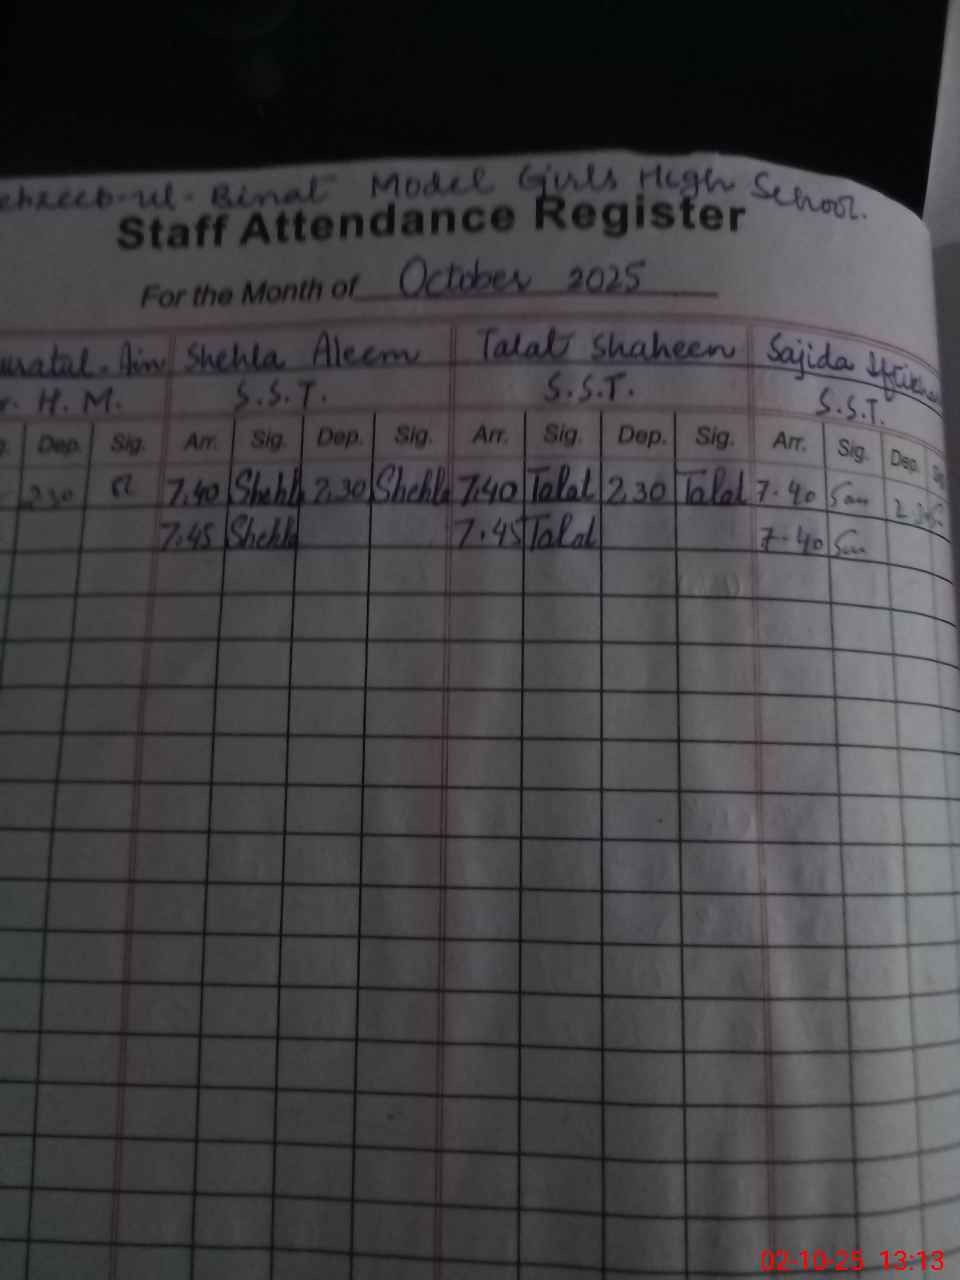 Binat Model Girls High School.
Staff Attendance Register
For the Month of October 2025
Shehla Aleem Talat Shaheen Sajida
H.M. S.S.T. S.S.T. S.S.T.
Dep. Sig. Arr. Sig. Dep. Sig. Arr. Sig. Dep. Sig. Arr. Sig. Dep.
2.30 7.40 Shehla 2.30 Shehla 7.40 Talat 2.30 Talat 7.40
7.45 Shehla 7.45 Talat 7.40
02-10-25 13:13